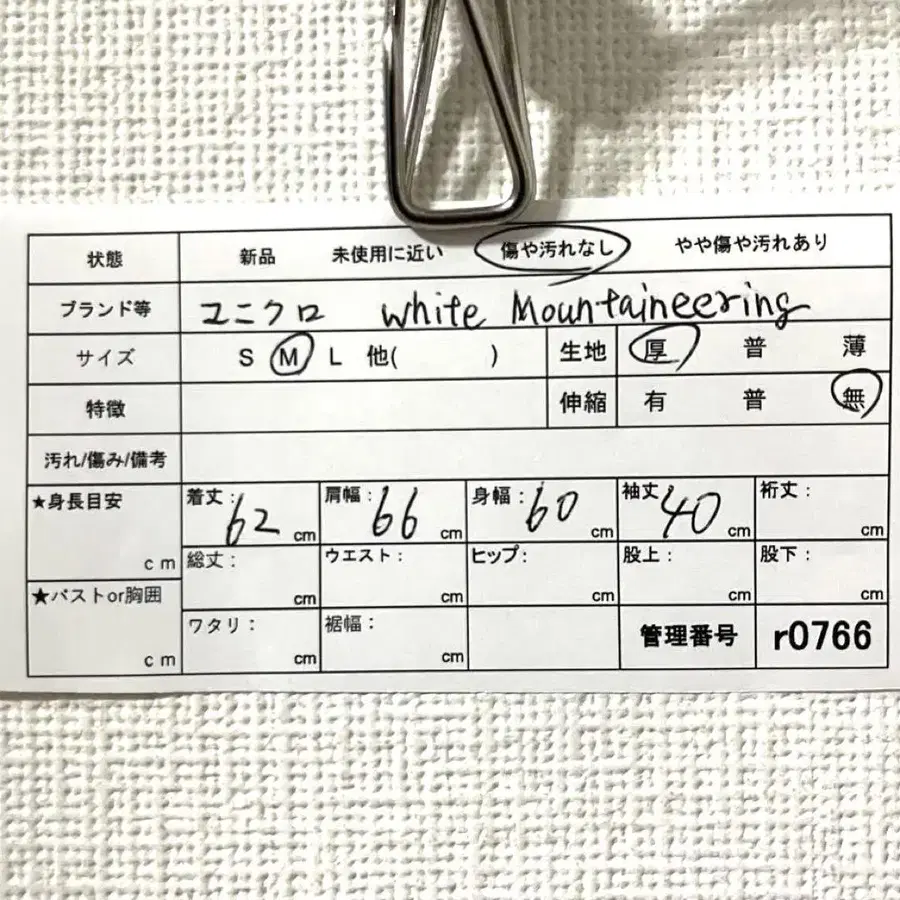 状態 新品 未使用に近い 傷や汚れなし やや傷や汚れあり
ブランド等 ユニクロ white Mountaineering
サイズ S M L 他( ) 生地 厚 普 薄
特徴 伸縮 有 普 無
汚れ/傷み/備考
★身長目安 cm
着丈: 62 cm 肩幅: 66 cm 身幅: 60 cm 袖丈: 40 cm 裄丈: cm
総丈: cm ウエスト: cm ヒップ: cm 股上: cm 股下: cm
★バストor胸囲 cm
ワタリ: cm 裾幅: cm 管理番号 r0766